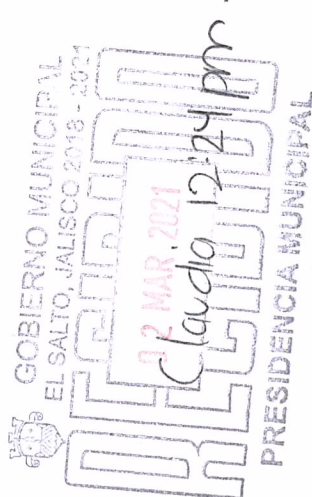 GOBIERNO MUNICIPAL
EL SALTO, JALISCO 2018 - 2021
RECIBIDO
12 MAR. 2021
Claudia 12:24 pm
PRESIDENCIA MUNICIPAL